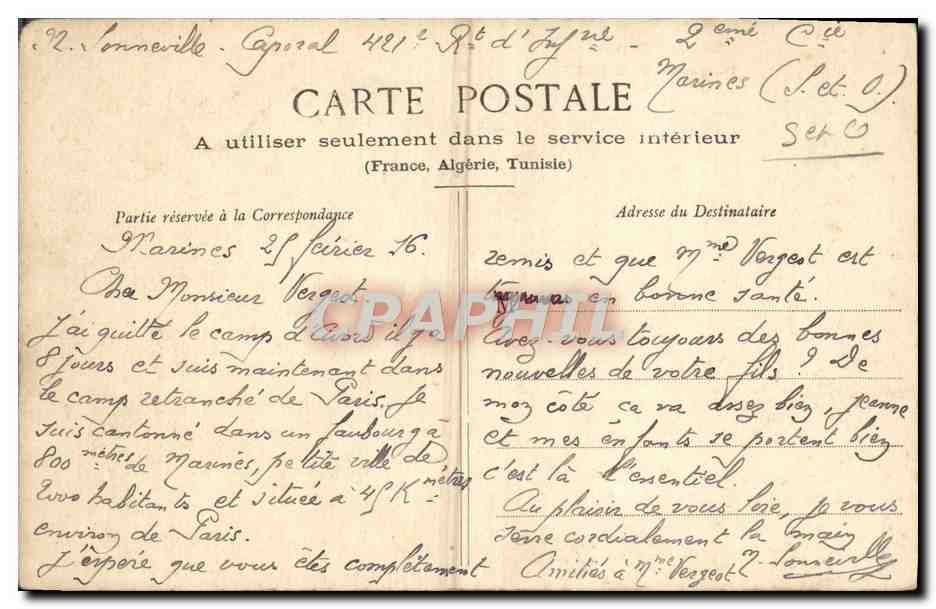 N. Sonneville - Caporal 421e Rt d'Infrie - 2eme Cie
Marines (S. et. O.)
S et O
CARTE POSTALE
A utiliser seulement dans le service intérieur
(France, Algérie, Tunisie)
Partie réservée à la Correspondance
Marines 25 février 16.
Cher Monsieur Vergeot
J'ai quitté le camp d'Avord il y a
8 jours et suis maintenant dans
le camp retranché de Paris. Je
suis cantonné dans un faubourg à
800 mètres de Marines, petite ville de
2000 habitants et située à 45 Kmètres
environ de Paris.
J'espère que vous êtes complètement
Adresse du Destinataire
remis et que Mme Vergeot est
toujours en bonne santé.
Avez-vous toujours des bonnes
nouvelles de votre fils ? De
mon côté ca va assez bien, Jeanne
et mes enfants se portent bien
c'est là l'essentiel.
Au plaisir de vous lire, je vous
serre cordialement la main
Amitiés à Mme Vergeot N. Sonneville
CPAPHIL